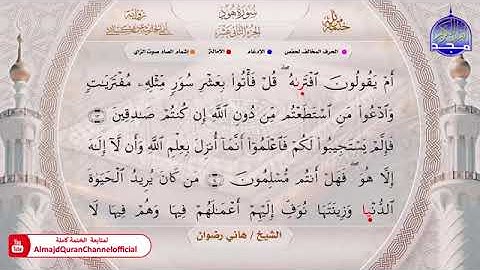 سورة هود
الجزء الثاني عشر
الحرف المخالف لحفص
الإدغام
الإمالة
إشمام الصاد صوت الزاي
أَمْ يَقُولُونَ ٱفْتَرَىٰهُ ۖ قُلْ فَأْتُوا۟ بِعَشْرِ سُوَرٍ مِّثْلِهِۦ مُفْتَرَيَٰتٍ
وَٱدْعُوا۟ مَنِ ٱسْتَطَعْتُم مِّن دُونِ ٱللَّهِ إِن كُنتُمْ صَٰدِقِينَ ١٣
فَإِلَّمْ يَسْتَجِيبُوا۟ لَكُمْ فَٱعْلَمُوٓا۟ أَنَّمَآ أُنزِلَ بِعِلْمِ ٱللَّهِ وَأَن لَّآ إِلَٰهَ
إِلَّا هُوَ ۖ فَهَلْ أَنتُم مُّسْلِمُونَ ١٤ مَن كَانَ يُرِيدُ ٱلْحَيَوٰةَ
ٱلدُّنْيَا وَزِينَتَهَا نُوَفِّ إِلَيْهِمْ أَعْمَٰلَهُمْ فِيهَا وَهُمْ فِيهَا لَا
الشيخ / هاني رضوان
لمتابعة الختمة كاملة
AlmajdQuranChannelofficial